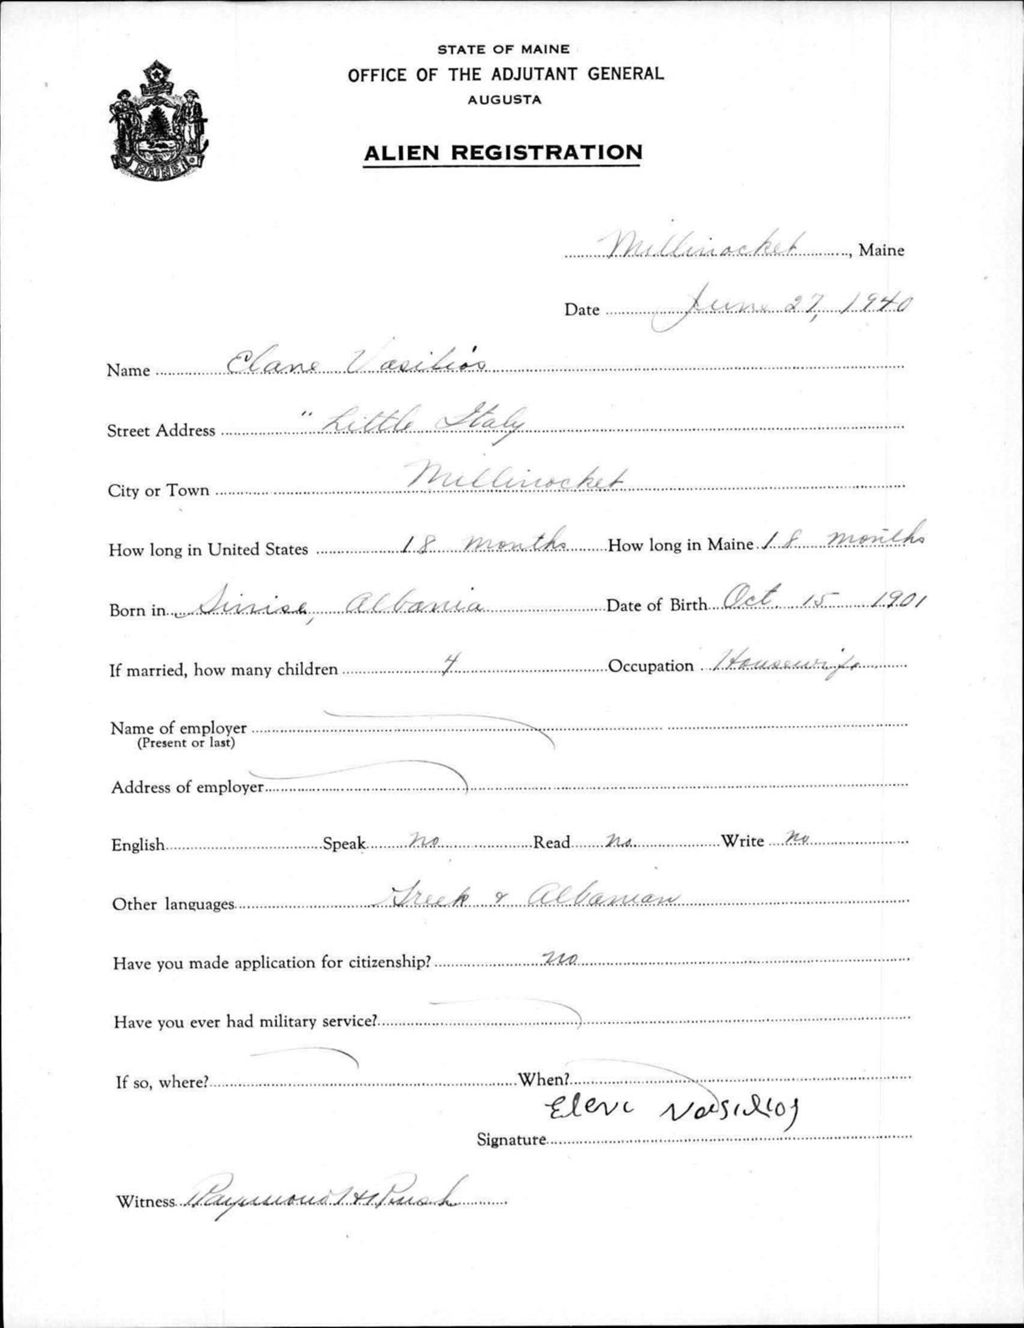 STATE OF MAINE
OFFICE OF THE ADJUTANT GENERAL
AUGUSTA
ALIEN REGISTRATION
MAINE
Millinocket, Maine
Date June 27, 1940
Name Elane Vasilios
Street Address " Little Italy
City or Town Millinocket
How long in United States 18 months How long in Maine 18 months
Born in Albania Date of Birth Oct. 15 1901
If married, how many children 4 Occupation Housewife
Name of employer
(Present or last)
Address of employer
English Speak no Read no Write no
Other languages Greek & Albanian
Have you made application for citizenship? no
Have you ever had military service?
If so, where? When?
Eleni Vasilios
Signature
Witness Raymond H Rush